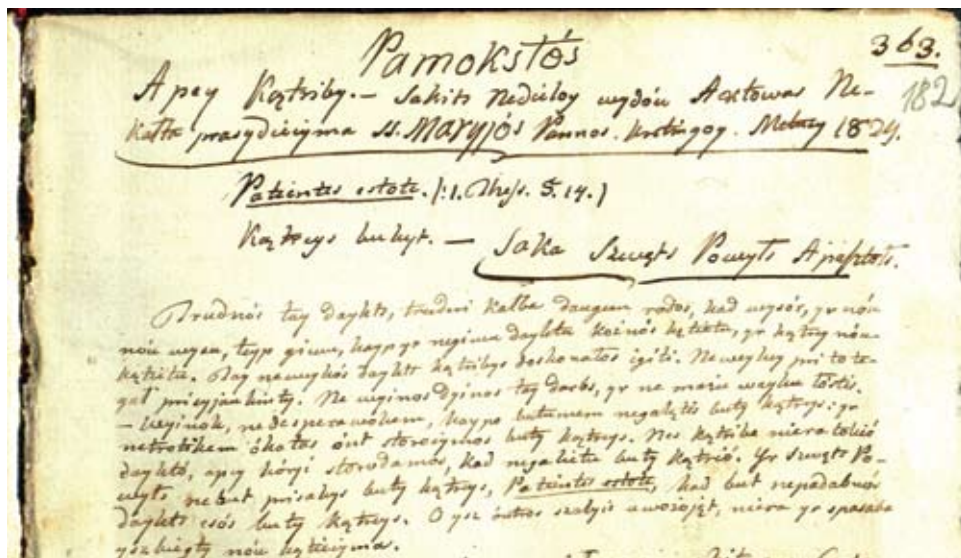 363.
182
Pamokslós
Apey Kątriby. — Sakits Nedieloy wydóu Aktowas Ne-
kalta prasydieima SS. Maryjós Pannos. Kretingoy. Metusy 1829.
Patientes estote. (:1. Thess. 5. 14.)
Kątreys bukyt. — Saka Szwęts Powyls Apasztols.
Trudnós tay daykts, trudni kalba daugum rodos, kad wysós, yr nóu
nóu wysa, teyp giwu, kayp yr negiwu daykta kożnós kętieti, yr kątrey nóu-
kętietu. Tay newykós daykts kątribys doskonalos igiti.
gal priyjaukinty. Ne wyinos dyinos tay darbs, yr ne mażu wayku
— Wyinok, nedesperawokem, kaypo butumem negalętis buty kątreys: yr
netrotikem ókatas ónt storoiymos buty kątreys. Nes kątribe niera tokió
daykló, apey kórjí storodamós, kad negalietu buty kątrió. Yr Szwęts Po-
wyls nebut prisakys buty kątreys, Patientes estote, kad but nepadabnós
daykts esós buty kątreys. O ysz óntros szalyis uwoźojąt, niera yr sposaba
yszbiegty nóu kętieiyma.